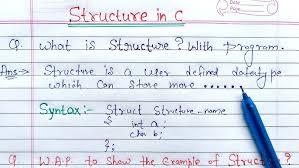 Structure in C
Date
Page
Q. What is Structure? With Program.
Ans→ Structure is a user defined datatype
which can store more ......
Syntax:- Struct Structure-name
{ int a;
char b;
};
Q. W.A.P. to Show the Example of Structure?